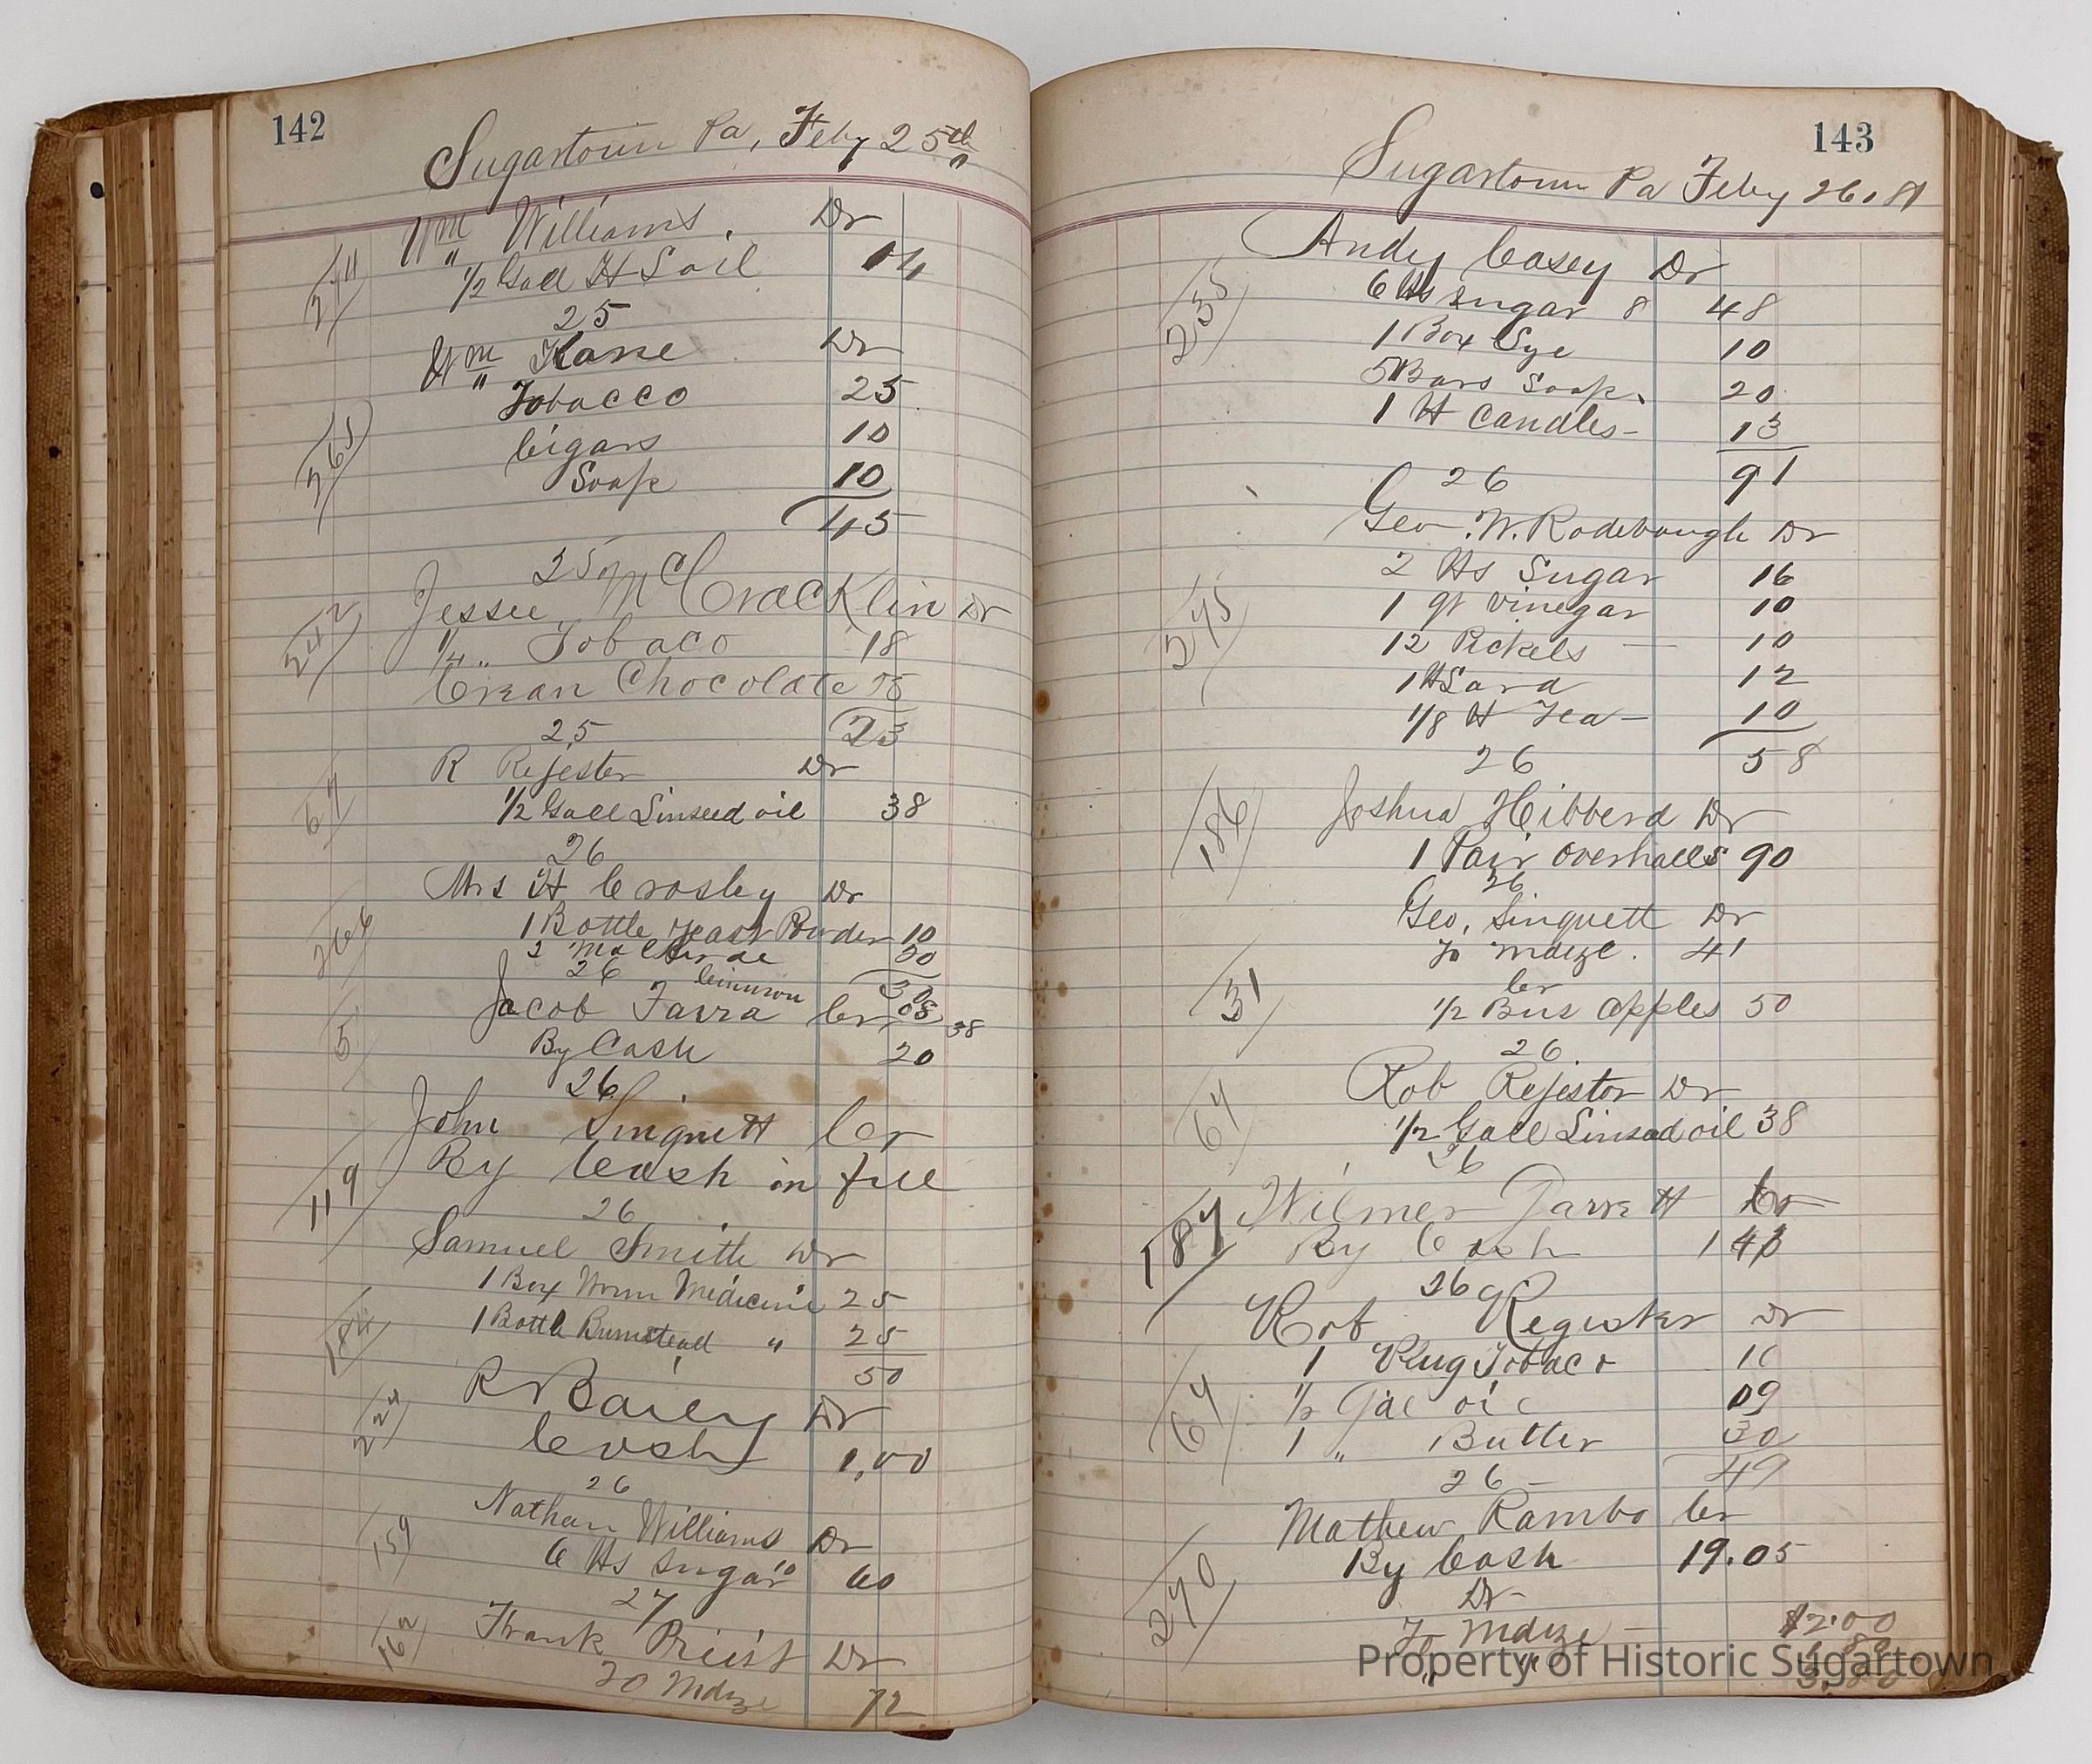 142
Sugartown Pa, Feby 25th
Wm Williams. Dr
244
1/2 Gall H S oil 14
25
Wm Kane Dr
Tobacco 25
265
Cigars 10
Soap 10
45
25
Jessee McCracklin Dr
242
1/4 " Tobaco 18
Cream Chocolate 5
25 23
R Rejester Dr
67
1/2 Gall Linseed oil 38
26
Mrs H Crosley Dr
266
1 Bottle yeast Powder 10
2 Mackerae 20
26 30
Cinnimon 08
Jacob Farra Cr 38
5
By Cash 20
26
John Singuett Cr
119
By Cash in full
26
Samuel Smith Dr
1 Box Worm Medicine 25
184
1 Bottle Bumstead " 25
50
R Bailey Dr
224
Cash 1,00
26
Nathan Williams Dr
159
6 lbs Sugar 10 60
27
Frank Priest Dr
162
To Mdze 72
143
Sugartown Pa Feby 26, 81
Andy Casey Dr
235
6 lbs Sugar 8 48
1 Box Lye 10
5 Bars Soap. 20
1 lb Candles - 13
26 91
Geo. W. Rodebaugh Dr
2 lbs Sugar 16
245
1 qt vinegar 10
12 Pickels 10
1 lb Lard 12
1/8 lb Tea - 10
26 58
Joshua Hibberd Dr
186
1 Pair overhalls 90
26
Geo, Singuett Dr
To mdze. 41
31
Cr
1/2 Bus Apples 50
26.
Rob Rejestor Dr
67
1/2 Gall Linsead oil 38
26
Wilmer Garrett Cr
187
By Cash 1 43
26
Rob Register Dr
1 Plug Tobaco 10
67
1/2 Gal oil 09
1 " Butter 30
26 - 49
Mathew Rambo Cr
By Cash 19.05
270
Dr
To Mdze - $2.00
Property of Historic Sugartown